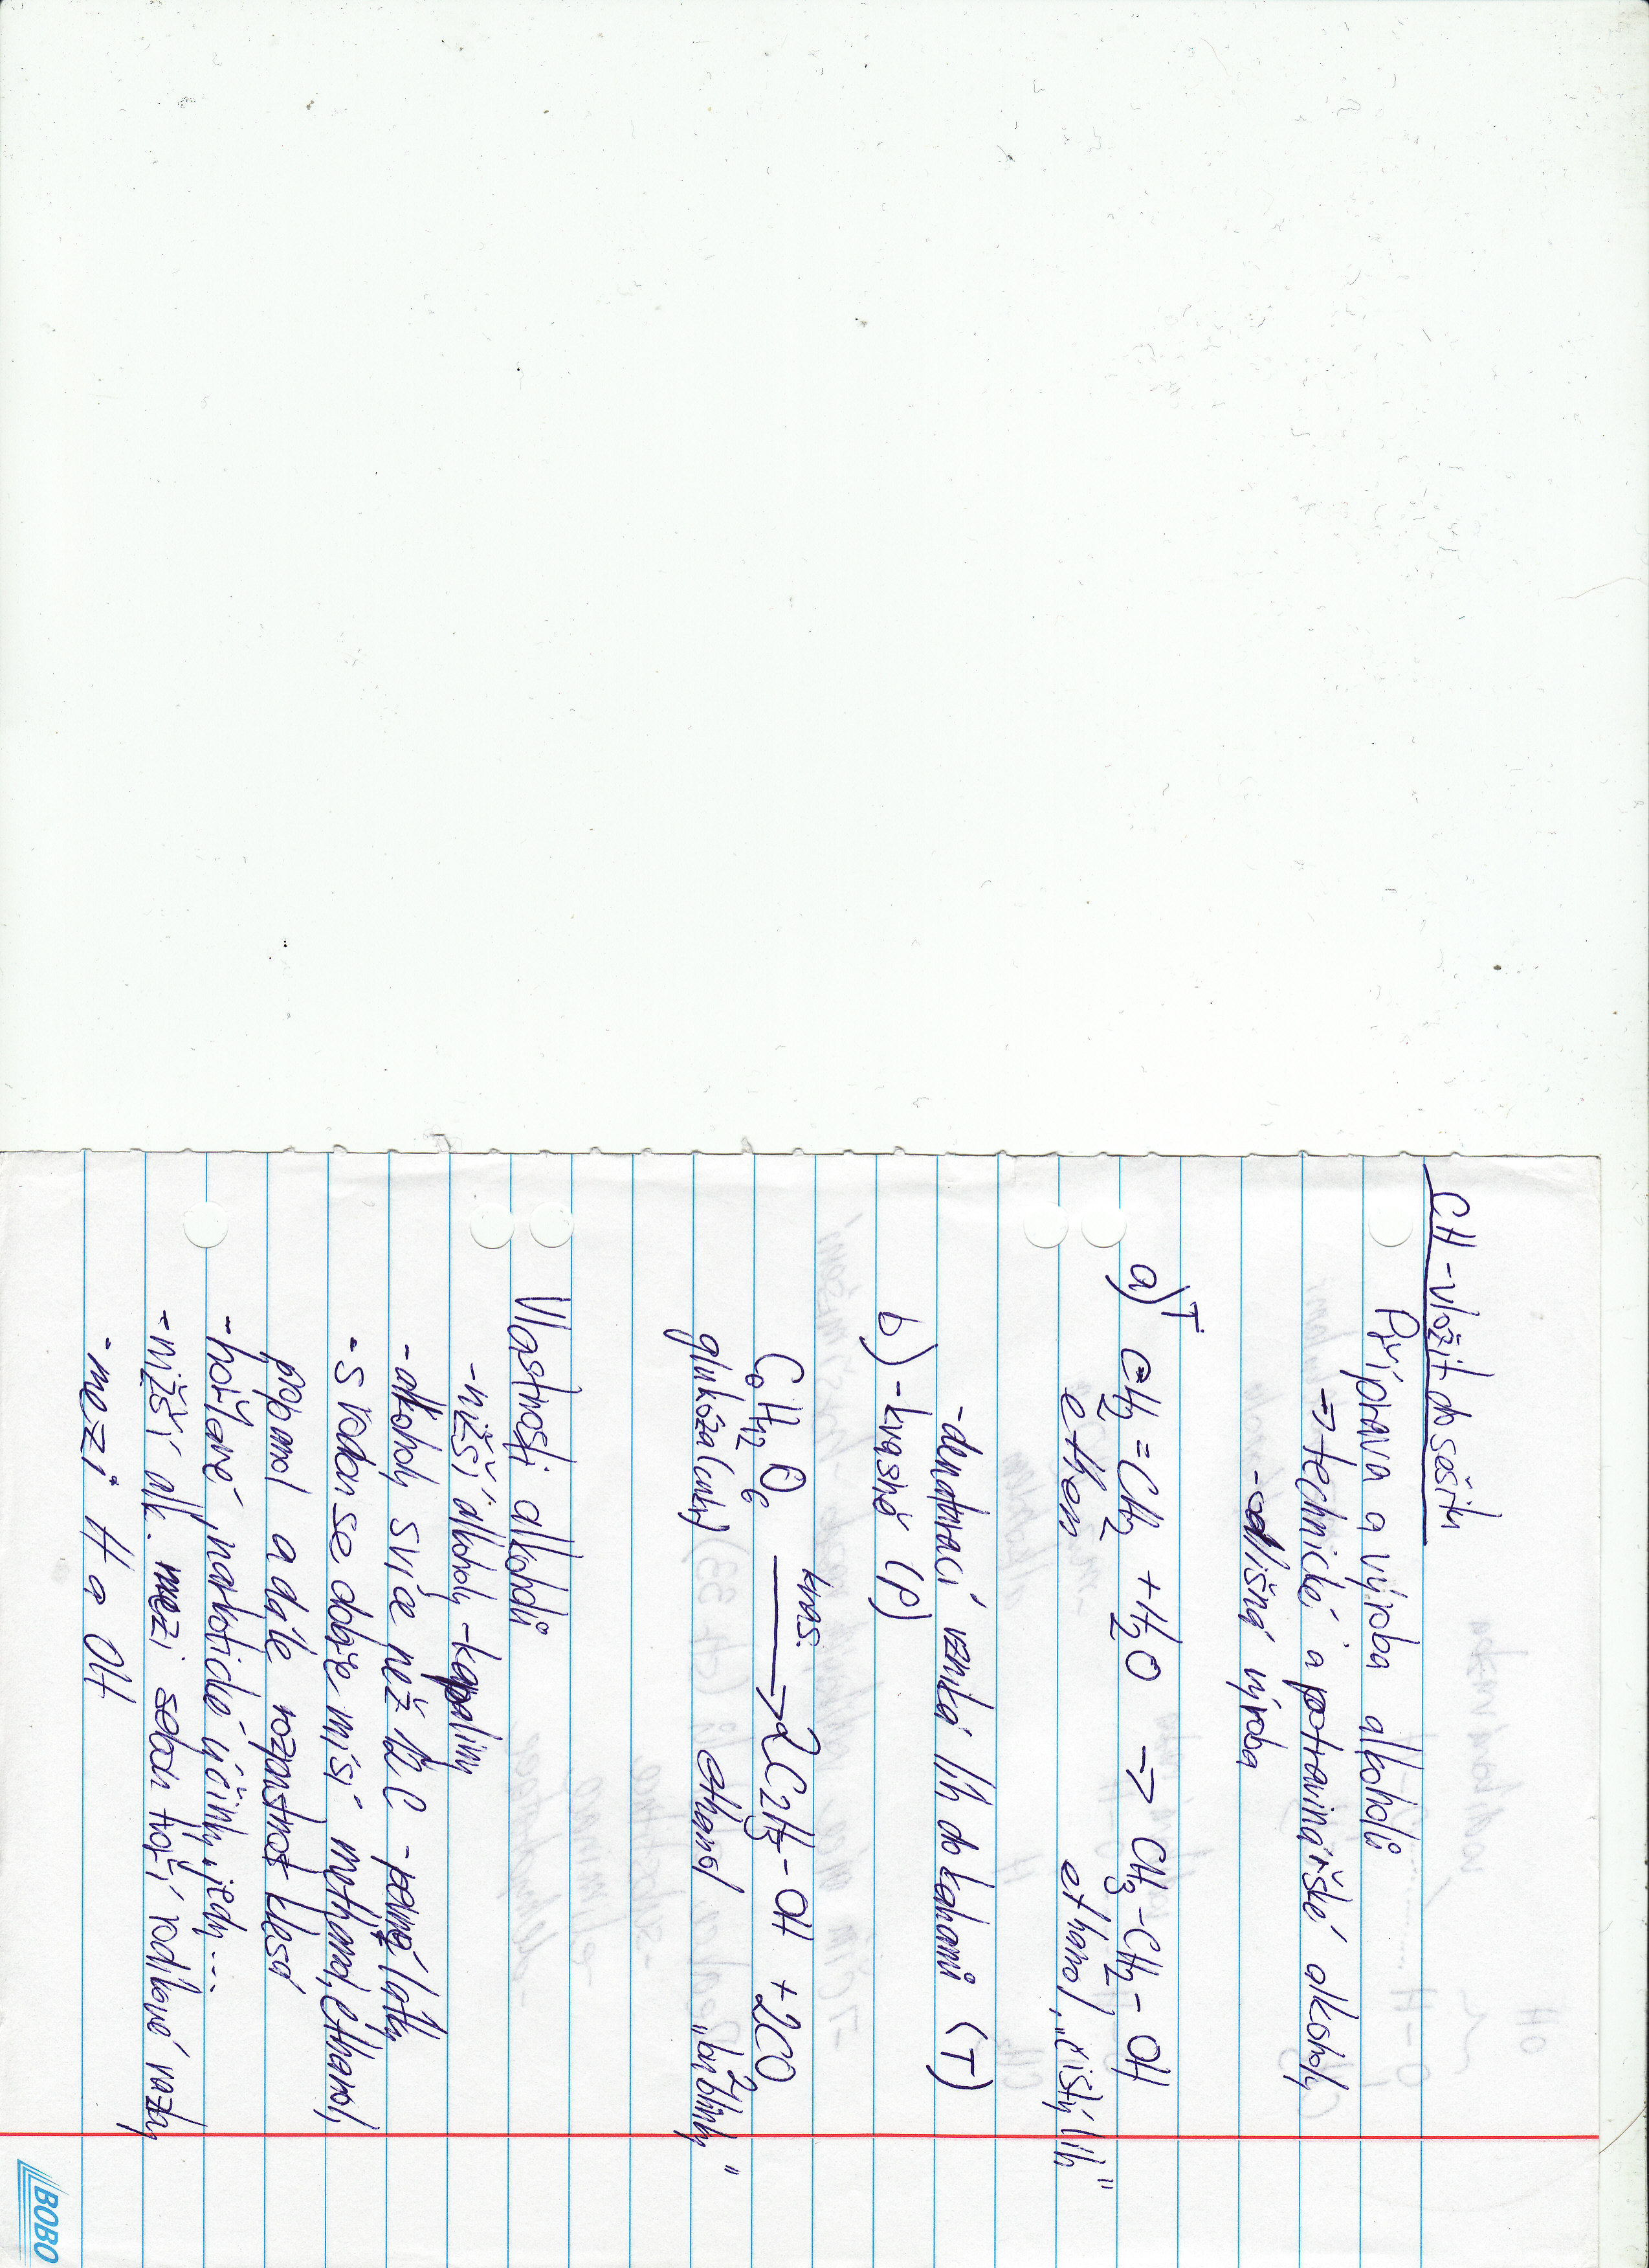 CH - vložit do sešitu
Příprava a výroba alkoholů
=> technické a potravinářské alkoholy
- odlišná výroba
a) T CH2 = CH2 + H2O → CH3 - CH2 - OH
ethen ethanol, „čistý líh"
- denaturací vzniká líh do kahanů (T)
b) - kvasné (P)
kvas.
C6H12O6 → 2C2H5 - OH + 2CO2
glukóza (cukr) ethanol „bublinky"
Vlastnosti alkoholů
- nižší alkoholy - kapaliny
- alkoholy s více než 12 C - pevné látky
- s vodou se dobře mísí methanol, ethanol,
propanol a dále rozpustnost klesá
- hořlavé, narkotické účinky, jedy...
- nižší alk. mezi sebou tvoří vodíkové vazby
- mezi H a OH
BOBO